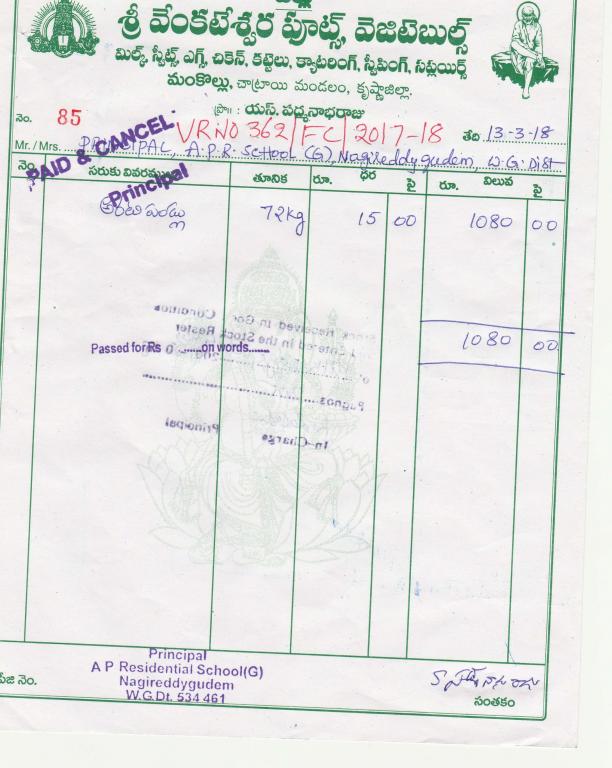 శ్రీ వేంకటేశ్వర ఫ్రూట్స్, వెజిటెబుల్స్
మిల్క్, స్వీట్స్, ఎగ్స్, చికెన్, కట్టెలు, క్యాటరింగ్, స్వీపింగ్, సప్లయిర్స్
మంకొల్లు, చాట్రాయి మండలం, కృష్ణాజిల్లా.
ప్రొ॥ : యస్. పద్మనాభరాజు
నెం. 85
VRNO 362/FC/2017-18
తేది 13-3-18
Mr. / Mrs. PRINCIPAL, A.P.R. School (G), Nagireddygudem, W.G. Dist
PAID & CANCEL
Principal
నెం. సరుకు వివరములు తూనిక రూ. ధర పై రూ. విలువ పై
అరటి పండ్లు 72kg 15 00 1080 00
Stock Received in Good Condition
Entered in the Stock Rester
1080 00
Passed for Rs ........on words.......
Pagnos
Principal
In-Charge
Principal
A P Residential School(G)
Nagireddygudem
W.G.Dt. 534 461
పేజి నెం.
సంతకం